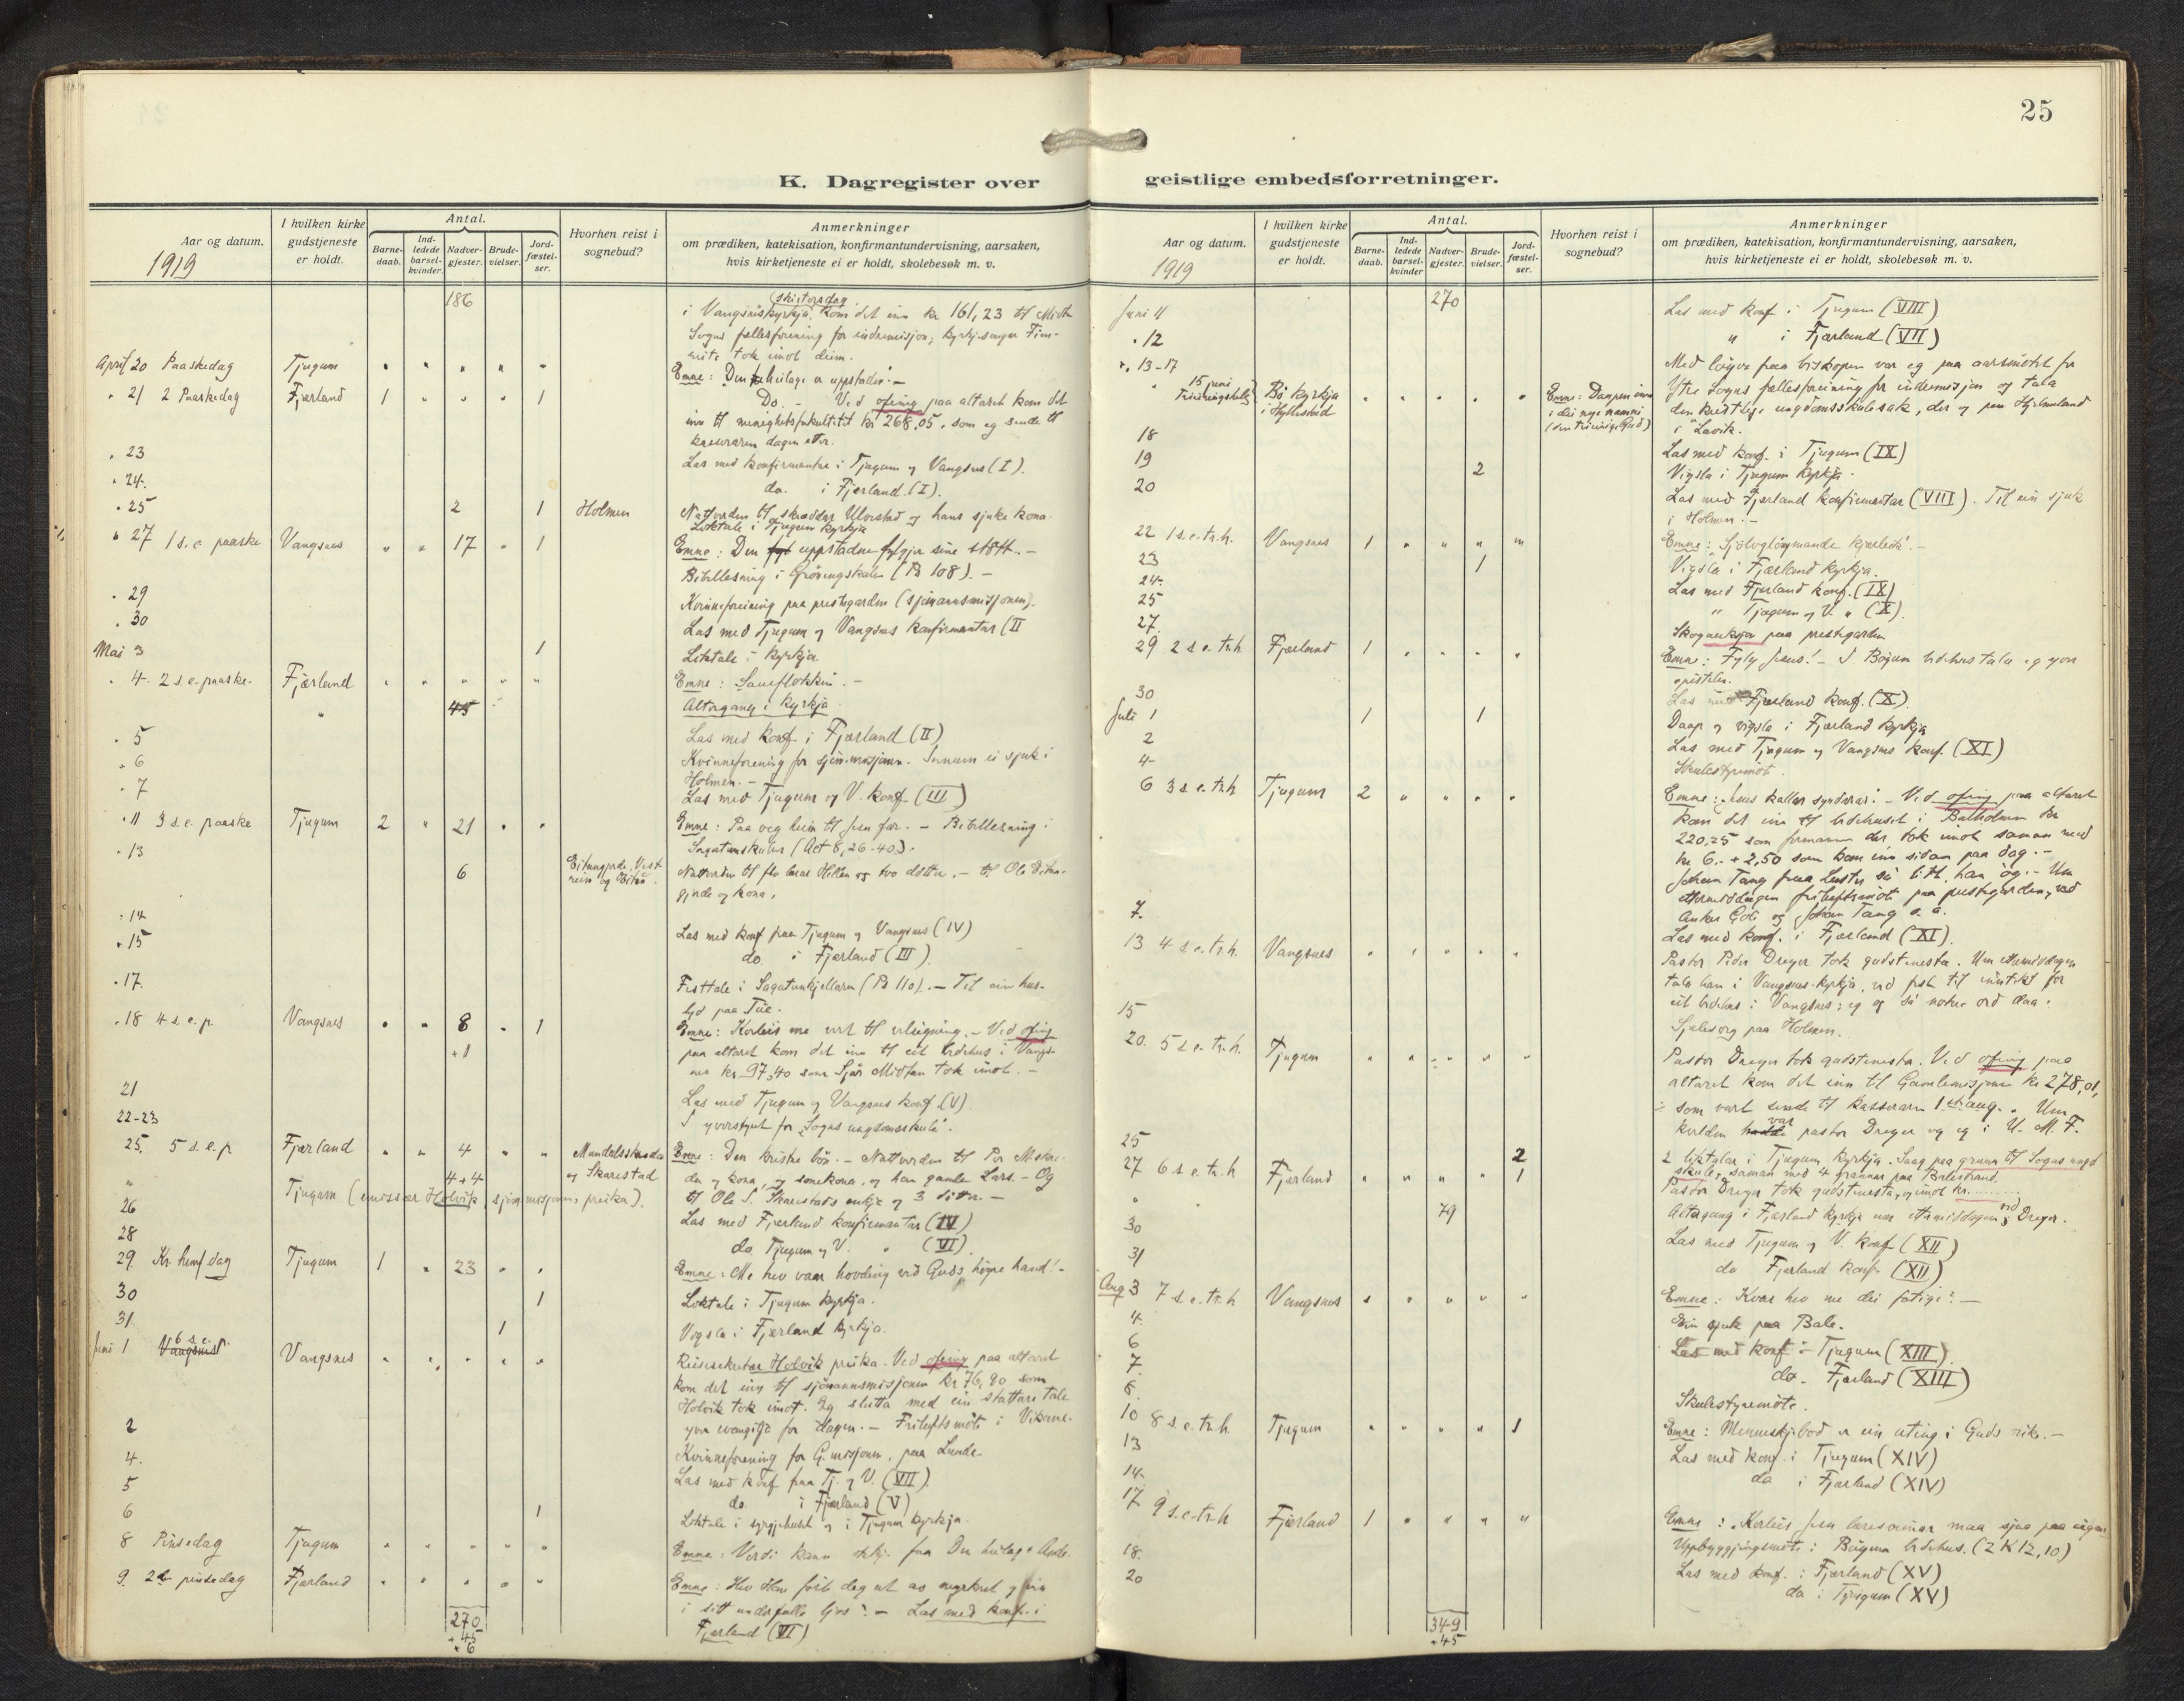 25
K. Dagregister over
geistlige embedsforretninger.
Aar og datum.
1919
I hvilken kirke gudstjeneste er holdt.
Antal.
Barne-daab.
Ind-ledede barsel-kvinder.
Nadver-gjester.
Brude-vielser.
Jord-fæstel-ser.
Hvorhen reist i sognebud?
Anmerkninger
om prædiken, katekisation, konfirmantundervisning, aarsaken,
hvis kirketjeneste ei er holdt, skolebesøk m. v.
186
skirtorsdag
i Vangsneskyrkja kom det inn kr 161,23 til Midtre
Sogns fellesforening for indremisjon; kyrkjesongar
tok imot deim.
April 20 Paaskedag Tjugum " " " " " Emne: Den heilage er uppstaden! —
" 21 2 Paaskedag Fjærland 1 " " " 1 Do. - Ved ofring paa altaret kom det
inn til menighetsfakultetet kr 268,05, som eg sende til
kasseraren dagen etter.
" 23 Las med konfirmantar i Tjugum og Vangsnes (I).
" 24. do. i Fjærland. (I).
" 25 2 1 Holmen Nattverden til skræddar Ulvestad og hans sjuke kona.
Liktale i Tjugum kyrkja
" 27 1 s. e. paaske Vangsnes " " 17 " 1 Emne: Den uppstadne fylgjer sine støtt. —
Bibellesning i Gróningskulen (Ps 108). —
" 29 Kvinneforeining paa prestegarden (sjømannsmisjonen).
" 30 Las med Tjugum og Vangsnes konfirmantar (II
Mai 3 1 Liktale i kyrkja
" 4. 2 s e. paaske. Fjærland " " " " " Emne: Saueflokken. —
" 45 Altergang i kyrkja.
" 5 Las med konf. i Fjærland (II)
" 6 Kvinneforening for sjøm.misjonen. Innum ei sjuk i
Holmen. —
" 7 Las med Tjugum og V. konf. (III)
" 11 3 s.e. paaske Tjugum 2 " 21 " " Emne: Paa veg heim til far. — Bibellesning i
Sagatunskulen (Act 8, 26-40).
" 13 6 Nattverden til
og kona.
" 14 Las med konf paa Tjugum og Vangsnes (IV)
" 15 do i Fjærland (III).
" 17. Festtale i Sagatunkjellaren (Ps 110). — Til ein hus-
lyd paa Tue.
" 18 4 s. e. p. Vangsnes " " 8 " 1 Emne: Korleis me vert til velsigning. — Ved ofring
+1 paa altaret kom det inn til eit bedehus i Vangs-
nes kr 97,40 som Sjur Midtun tok imot. —
21 Las med Tjugum og Vangsnes konf. (V).
22-23 I yverstyret for "Sogns ungdomsskule".
25. 5 s. e. p Fjærland " " 4 " " Mundalsstranden Emne: Den kristne bøn. — Nattverden til Per
4+4 og Skarestad og kona, og sonekona, og han gamle Lars. — Og
til Ole S. Skarestads enkje og 3 —
" Tjugum (emissær Holvik, sjøm.misjonen, preika).
26 Las med Fjærland konfirmantar (IV)
28 do Tjugum og V. " (VI)
29. Kr. himf. dag Tjugum 1 " 23 " " Emne: Me hev vaar hovding ved Guds høgre hand! —
30 1 Liktale i Tjugum kyrkja.
31. 1 Vigsla i Fjærland kyrkja.
Juni 1 6 s.e.p. Vangsnes " " " " " Reisesekretær Holvik preika. Ved ofring paa altaret
kom det inn til sjømannsmisjonen kr 76,90 som
Holvik tok imot. Eg slutta med ein stuttare tale
yver evangelja for dagen. — Friluftsmøte i
2 Kvinneforening for G. misjonen, paa Lunde.
4. Las med konf fraa Tj. og V. (VII).
5 do i Fjærland (V)
6 1 Liktale i syrgjehuset og i Tjugum kyrkja.
8 Pinsedag Tjugum " " " " " Emne: Verdi kann ikkje faa Den heilage Ande.
9. 2den pinsedag Fjærland " " " " " Emne: Hev Han ført deg ut av myrkret og inn
i sitt underfulle ljos? — Las med konf. i
270 Fjærland (VI)
+45
+6
Aar og datum.
1919
I hvilken kirke gudstjeneste er holdt.
Antal.
Barne-daab.
Ind-ledede barsel-kvinder
Nadver-gjester.
Brude-vielser.
Jord-fæstel-ser.
Hvorhen reist i sognebud?
Anmerkninger
om prædiken, katekisation, konfirmantundervisning, aarsaken,
hvis kirketjeneste ei er holdt, skolebesøk m. v.
Juni 11 270 Las med konf i Tjugum (VIII)
" 12 " i Fjærland (VII)
" 13-17 Med løyve fraa biskopen var eg paa aarsmøtet for
" 15 juni Bø kyrkja i Hyllestad " " " " " Emne: Daapen inn i det nye namni (den treeinige Gud) Ytre Sogns fellesforeining for indremisjon og tala
den kristelige ungdomsskulesak, der og paa
i Lavik.
18 Las med konf. i Tjugum (IX)
19 2 Vigsla i Tjugum kyrkja.
20 Las med Fjærland konfirmantar (VIII). Til ein sjuk
i Holmen. —
22 1 s.e.tr.h. Vangsnes 1 " " " " Emne: Sjølvgløymande kjærleik! —
23 1 Vigsla i Fjærland kyrkja.
24. Las med Fjærland konf. (IX)
25 " Tjugum og V. " (X).
27. Skogauksjon paa prestegarden
29 2 s e. tr.h Fjærland 1 " " " " Emne: Fylg Jesus! — I Bøyum bedehus tala eg yver
epistelen.
30 Las med Fjærland konf. (X).
Juli 1 1 1 Daap og vigsla i Fjærland kyrkja
2 Las med Tjugum og Vangsnes konf. (XI)
4- Skulestyremøt.
6 3 s.e. tr.h Tjugum 2 " " " " Emne: Jesus kallar syndarar! — Ved ofring paa altaret
kom det inn til bedehuset i Balholmen kr
220,25 som formannen der tok imot saman med
kr 6.- + 2,50 som kom inn sidan paa dag. —
Johan Tang fraa Luster sa litt, han òg. — Um
ettermiddagen friluftsmøt paa prestegarden, ved
Anker Godø og Johan Tang o. a.
7. Las med konf. i Fjærland (XI).
13 4 s.e.tr.h. Vangsnes " " " " " Pastor Peder Dreyer tok gudstenesta. Um ettermiddagen
tala han i Vangsnes-kyrkja, ved fest til inntekt for
eit bedehus i Vangsnes; eg og sa nokre ord daa.
15 Sjelesorg paa Holmen.
20. 5 s.e. tr.h. Tjugum " " " " " Pastor Dreyer tok gudstenesta. Ved ofring paa
altaret kom det inn til Samemisjonen kr 278,01,
som vart sende til kasseraren 1ste aug. Um
kvelden var pastor Dreyer og eg i U. M. F.
25 2 2 liktalar i Tjugum kyrkja. Saag paa grunn til Sogns ungd.
skule, saman med 4 paa Balestrand.
27 6 s e. tr. h Fjærland " " " " 1 Pastor Dreyer tok gudstenesta, og imot kr.........
" 79 Altergang i Fjærland kyrkja um ettermiddagen ved Dreyer.
30 Las med Tjugum og V. konf (XII)
31 do Fjærland konf (XII)
Aug 3 7 s e. tr. h Vangsnes " " " " " Emne: Kvar hev me dei fatige? —
4. Ein sjuk paa Bale.
6 Las med konf i Tjugum (XIII).
7. do. Fjærland (XIII)
8. Skulestyremøte.
10 8 s e. tr. h. Tjugum " " " " 1 Emne: Menneskjebod er ein uting i Guds rike. —
13 Las med konf. i Tjugum (XIV)
14. do i Fjærland (XIV)
17 9 s.e-tr-h Fjærland 1 " " " " Emne: Korleis læresveinar maa sjaa paa eigen
Uppbyggjingsmøte i Bøyum bedehus. (2 K 12,10)
18. Las med konf. i Fjærland (XV)
20 do i Tjugum (XV)
349
+45